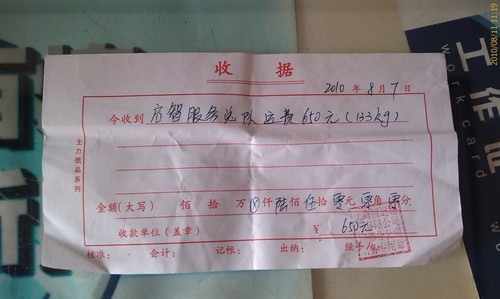 2010/08/11 11:19
收 据
2010 年 8 月 7 日
今收到 启智服务总队 运费 650元 (133kg)
主力纸品系列
金额(大写) 佰 拾 万 ⊗仟 陆佰 伍拾 零元 零角 零分
收款单位(盖章) ¥ 650元
核准: 会计: 记帐: 出纳: 经手
工作证
work card